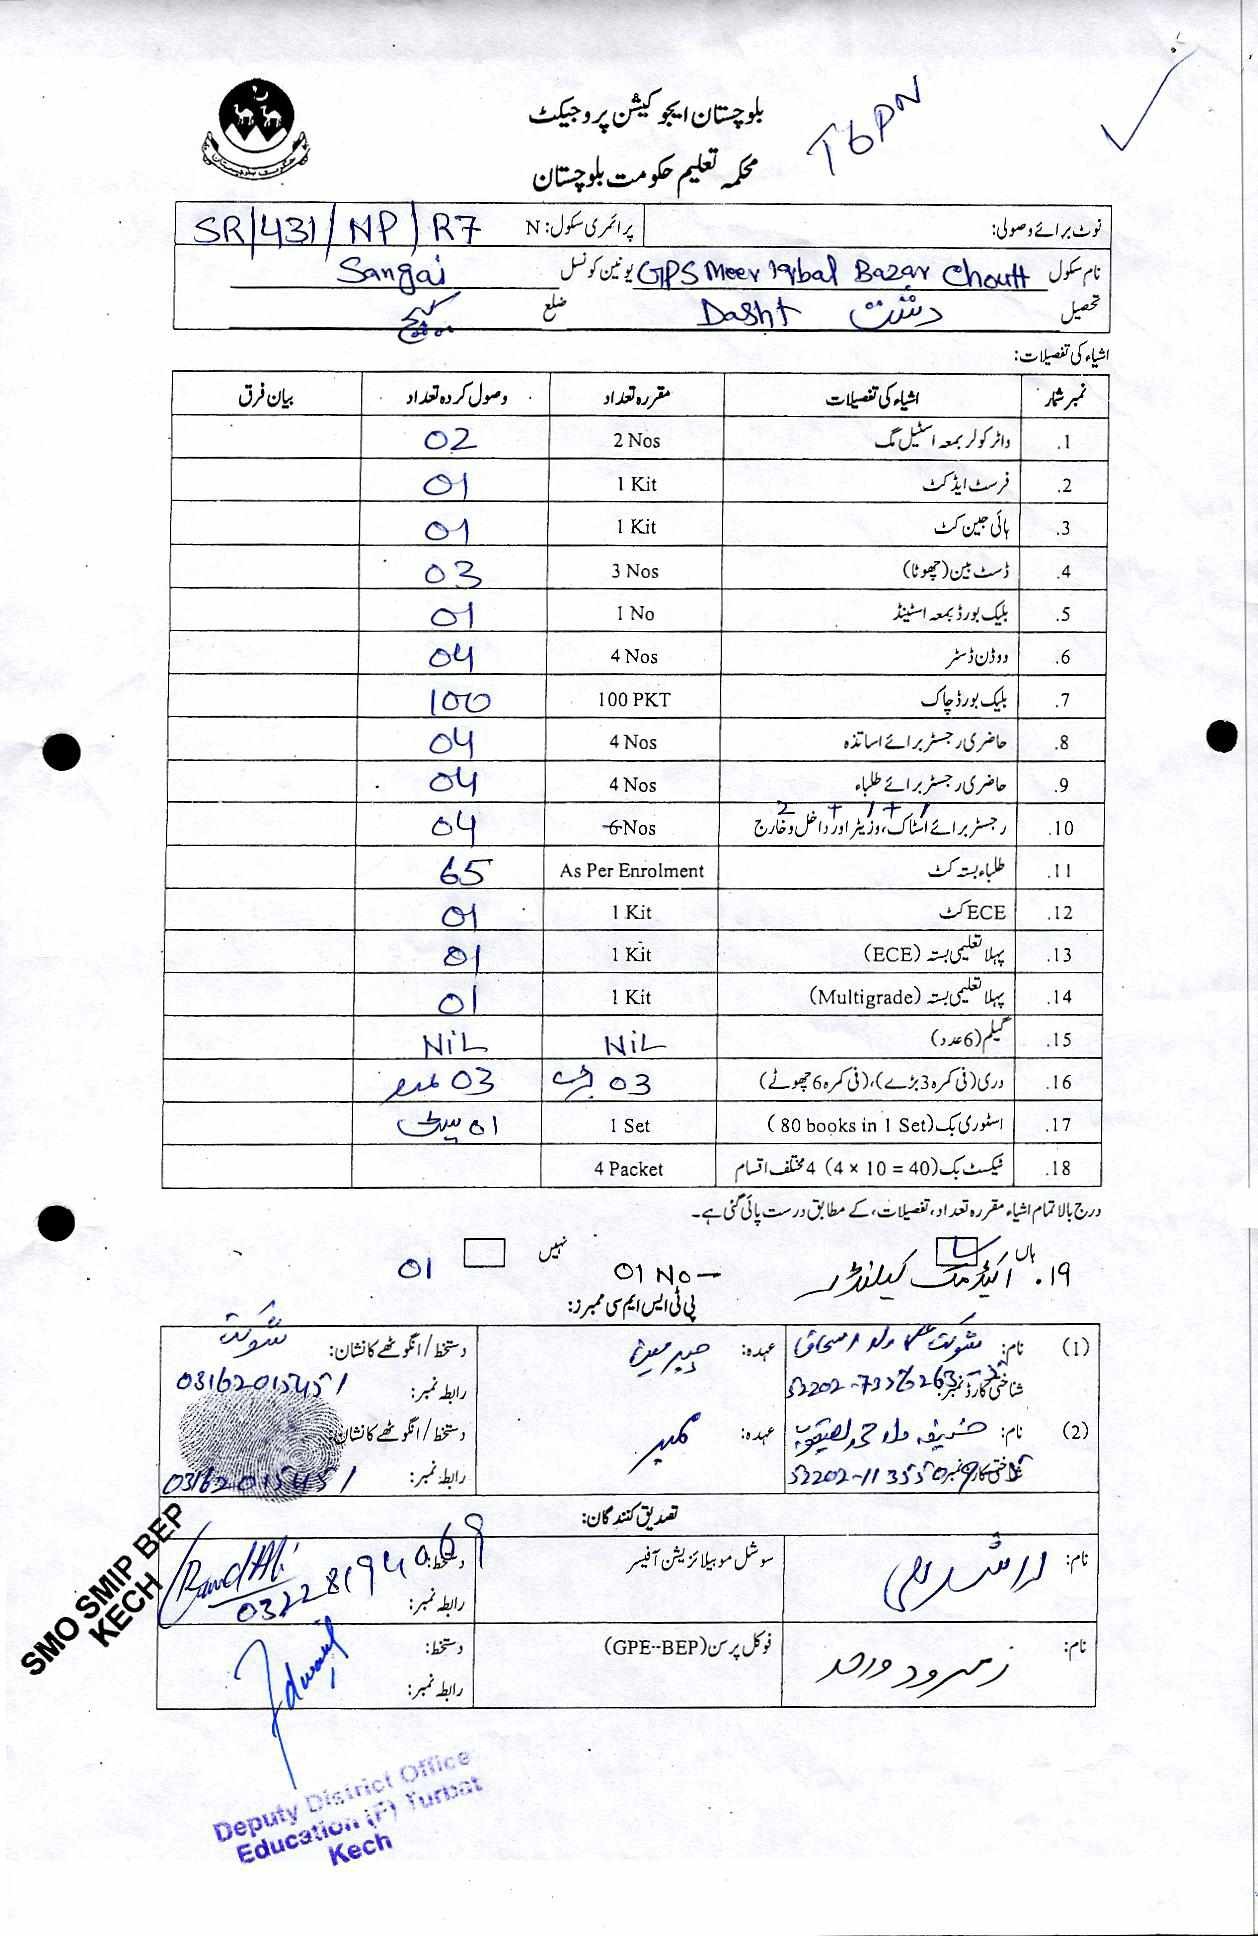 بلوچستان ایجوکیشن پروجیکٹ
T6PN
محکمہ تعلیم حکومت بلوچستان
نوٹ برائے وصولی: پرائمری سکول: N SR/431/NP/R7
نام سکول GPS Meer Iqbal Bazar Choutt یونین کونسل Sangai
تحصیل دشت Dasht ضلع کیچ
اشیاء کی تفصیلات:
نمبر شمار اشیاء کی تفصیلات مقررہ تعداد وصول کردہ تعداد بیان فرق
1. واٹر کولر بمعہ اسٹیل مگ 2 Nos 02
2. فرسٹ ایڈ کٹ 1 Kit 01
3. ہائی جین کٹ 1 Kit 01
4. ڈسٹ بین (چھوٹا) 3 Nos 03
5. بلیک بورڈ بمعہ اسٹینڈ 1 No 01
6. ووڈن ڈسٹر 4 Nos 04
7. بلیک بورڈ چاک 100 PKT 100
8. حاضری رجسٹر برائے اساتذہ 4 Nos 04
9. حاضری رجسٹر برائے طلباء 4 Nos 04
2 + 1 + 1
10. رجسٹر برائے اسٹاک، وزیٹر اور داخل و خارج 6 Nos 04
11. طلباء بستہ کٹ As Per Enrolment 65
12. ECE کٹ 1 Kit 01
13. پہلا تعلیمی بستہ (ECE) 1 Kit 01
14. پہلا تعلیمی بستہ (Multigrade) 1 Kit 01
15. گیلم (6 عدد) NiL NiL
16. دری (فی کمرہ 3 بڑے)، (فی کمرہ 6 چھوٹے) 03 بڑے 03 عدد
17. اسٹوری بک (80 books in 1 Set) 1 Set 01 سیٹ
18. ٹیکسٹ بک (4 × 10 = 40) 4 مختلف اقسام 4 Packet
درج بالا تمام اشیاء مقررہ تعداد، تفصیلات، کے مطابق درست پائی گئی ہے۔
ہاں نہیں
19. اکیڈمک کیلنڈر 01 No 01
پی ٹی ایس ایم سی ممبرز:
(1) نام: شوکت علی ولد اسحاق عہدہ: چیرمین دستخط/انگوٹھے کا نشان: شوکت
شناختی کارڈ نمبر: رابطہ نمبر: 03162015451
(2) نام: عہدہ: ممبر دستخط/انگوٹھے کا نشان:
شناختی کارڈ نمبر: رابطہ نمبر: 03162015451
تصدیق کنندگان:
نام: سوشل موبیلائزیشن آفیسر دستخط:
رابطہ نمبر: 03228194069
نام: فوکل پرسن (GPE--BEP) دستخط:
رابطہ نمبر:
SMO SMIP BEP
KECH
Deputy District Office
Education (F) Turbat
Kech